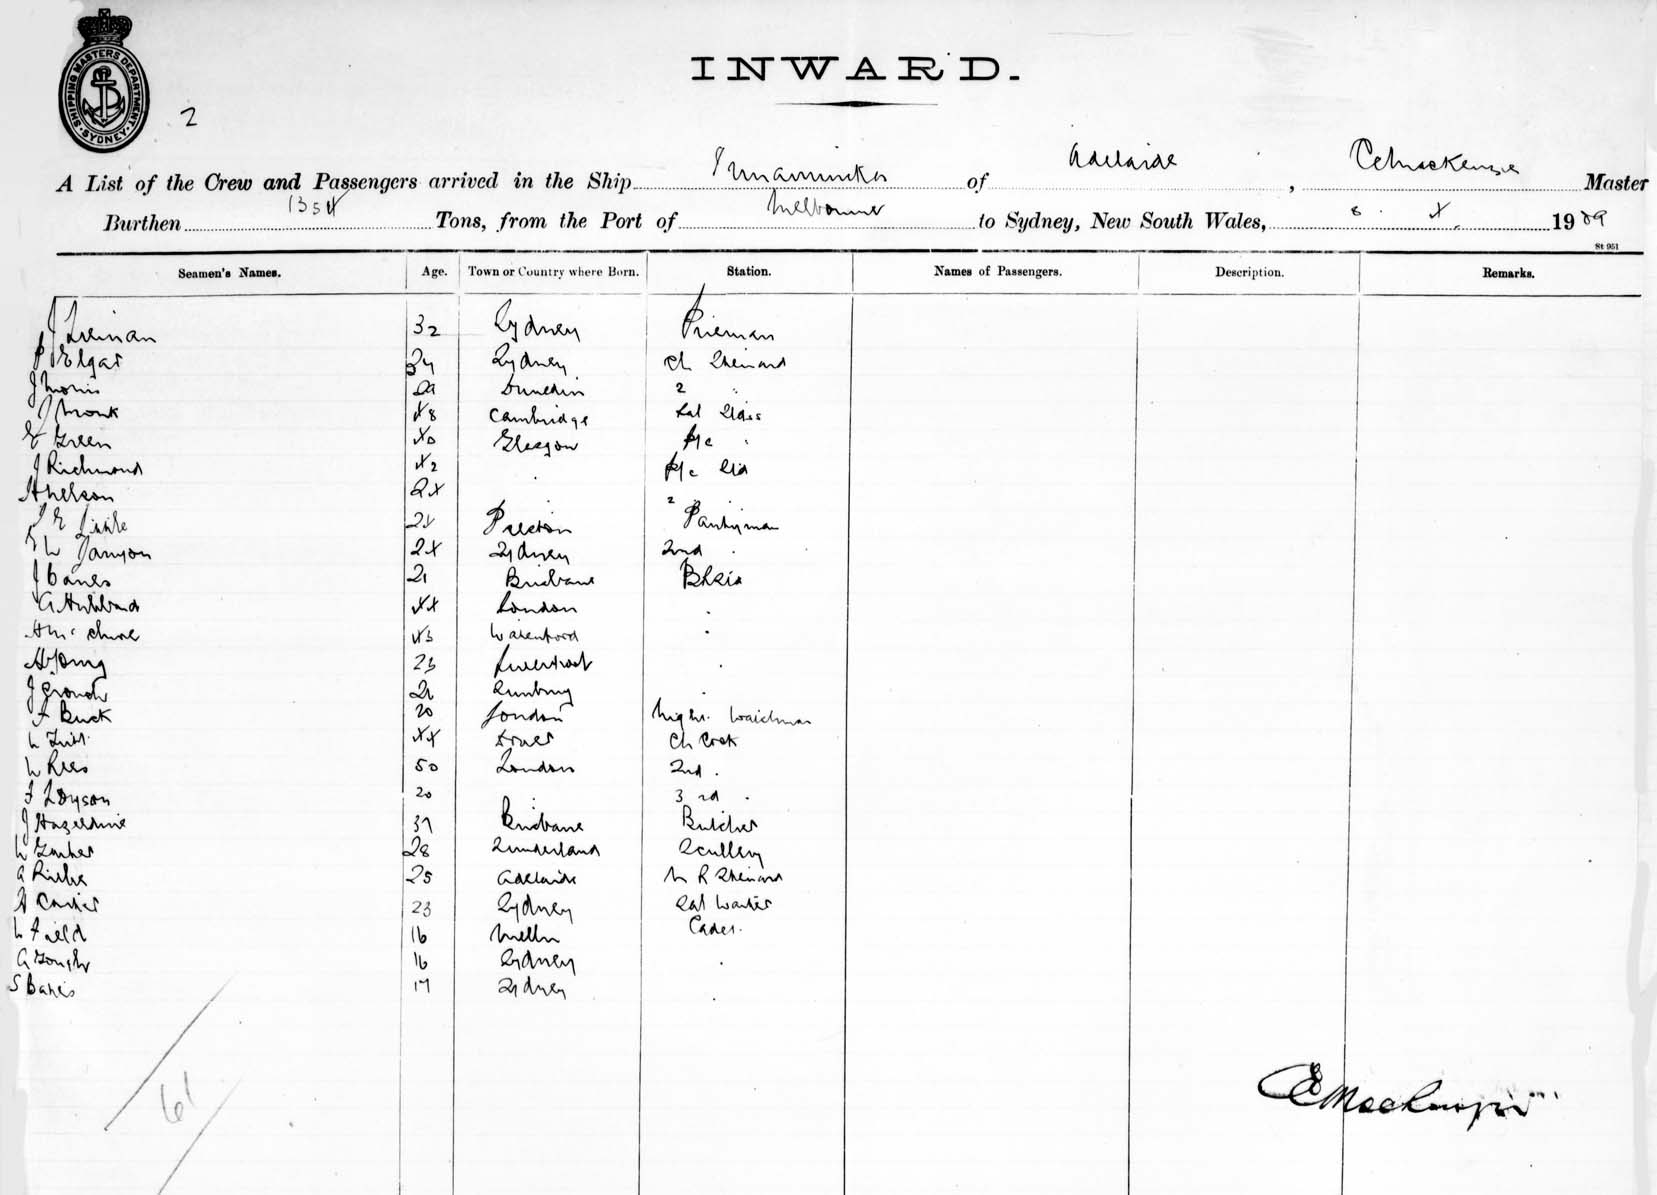 SHIPPING MASTERS DEPARTMENT · SYDNEY ·
2
INWARD.
A List of the Crew and Passengers arrived in the Ship Innamincka of Adelaide, C E Mackenzie Master
Burthen Tons, from the Port of Melbourne to Sydney, New South Wales, 8 . X . 1909
St 951
Seamen's Names. Age. Town or Country where Born. Station. Names of Passengers. Description. Remarks.
J 32 Sydney Fireman
P Elgar 34 Sydney Ch Steward
J Morris 29 Dunedin 2 "
J Monk 48 Cambridge Sal
E Green 40 Glasgow "
J Richmond 42 "
H Nelson 24
J E 24 Preston Pantryman
24 Sydney 2nd "
J 21 Brisbane
A Hubbard 44 London "
H Mc 43 Waterford "
H Young 23 Liverpool "
J Crouch 21 Sunbury "
F Buck 20 London Night Watchman
W 44 Dover Ch Cook
W Rees 50 London 2nd "
F Dyson 20 " 3rd "
J Hazeldine 37 Brisbane Butcher
W 28 Sunderland Scullery
A 25 Adelaide M R Steward
H Carter 23 Sydney Sal Waiter
W Field 16 Melb Cadet
A Gough 16 Sydney "
S Bates 17 Sydney "
61
C E Mackenzie